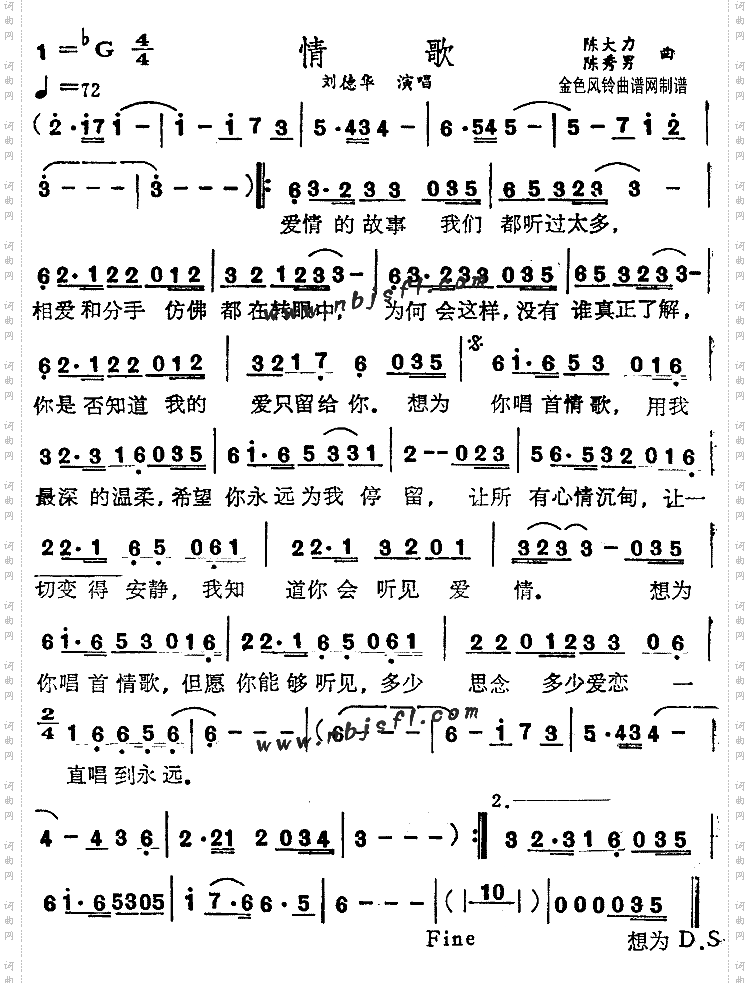 1=♭G 4/4
情 歌
陈大力
陈秀男 曲
♩=72
刘德华 演唱
金色风铃曲谱网制谱
(2·171-|1-173|5·434-|6·545-|5-712
3---|3---)‖:63·233 035|65323 3-
爱情的故事 我们 都听过太多,
62·122012|321233-|63·233035|653233-
相爱和分手 仿佛 都在转眼中, 为何会这样,没有 谁真正了解,
www.nbjsfl.com
62·122012|32176 035|61·653 016
你是否知道 我的 爱只留给你. 想为 你唱首情歌, 用我
32·316035|61·65331|2--023|56·532016
最深的温柔,希望 你永远为我 停 留, 让所 有心情沉甸,让一
22·1 65 061|22·1 3201|3233-035
切变得 安静, 我知 道你会 听见 爱 情. 想为
61·653016|22·165061|2201233 06
你唱首情歌,但愿 你能够听见,多少 思念 多少爱恋 一
2/4 16656|6---|(6---|6-173|5·434-
www.nbjsfl.com
直唱到永远.
4-436|2·21 2034|3---):‖
2.
32·316035
61·65305|17·66·5|6---|(|10|)000035‖
Fine
想为 D.S.
词曲网
词曲网
词曲网
词曲网
词曲网
词曲网
词曲网
词曲网